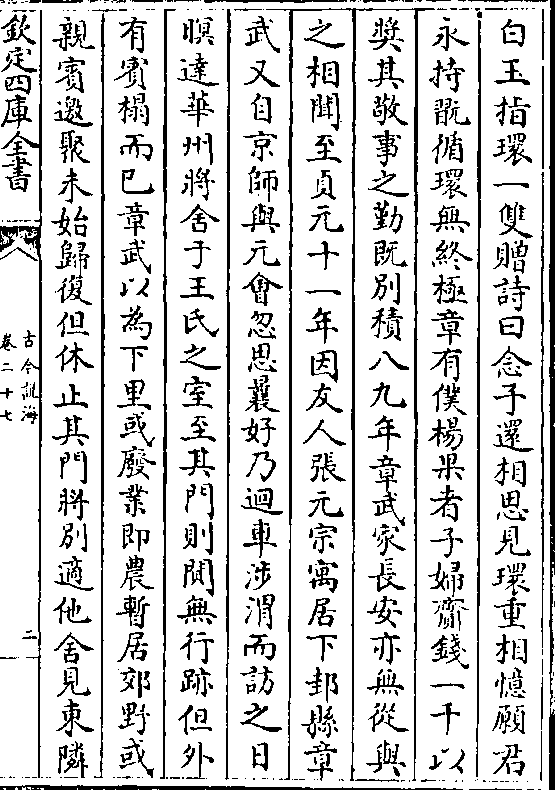 白玉指環一雙贈詩曰念子還相思見環重相憶願君
永持翫循環無終極章有僕楊果者子婦齎錢一千以
奬其敬事之勤既別積八九年章武家長安亦無從與
之相聞至貞元十一年因友人張元宗寓居下邽縣章
武又自京師與元會忽思曩好乃迴車涉渭而訪之日
暝達華州將舍于王氏之室至其門則闃無行跡但外
有賓榻而已章武以為下里或廢業即農暫居郊野或
親賓邀聚未始歸復但休止其門將別適他舍見東隣
欽定四庫全書
古今說海
卷二十七
二